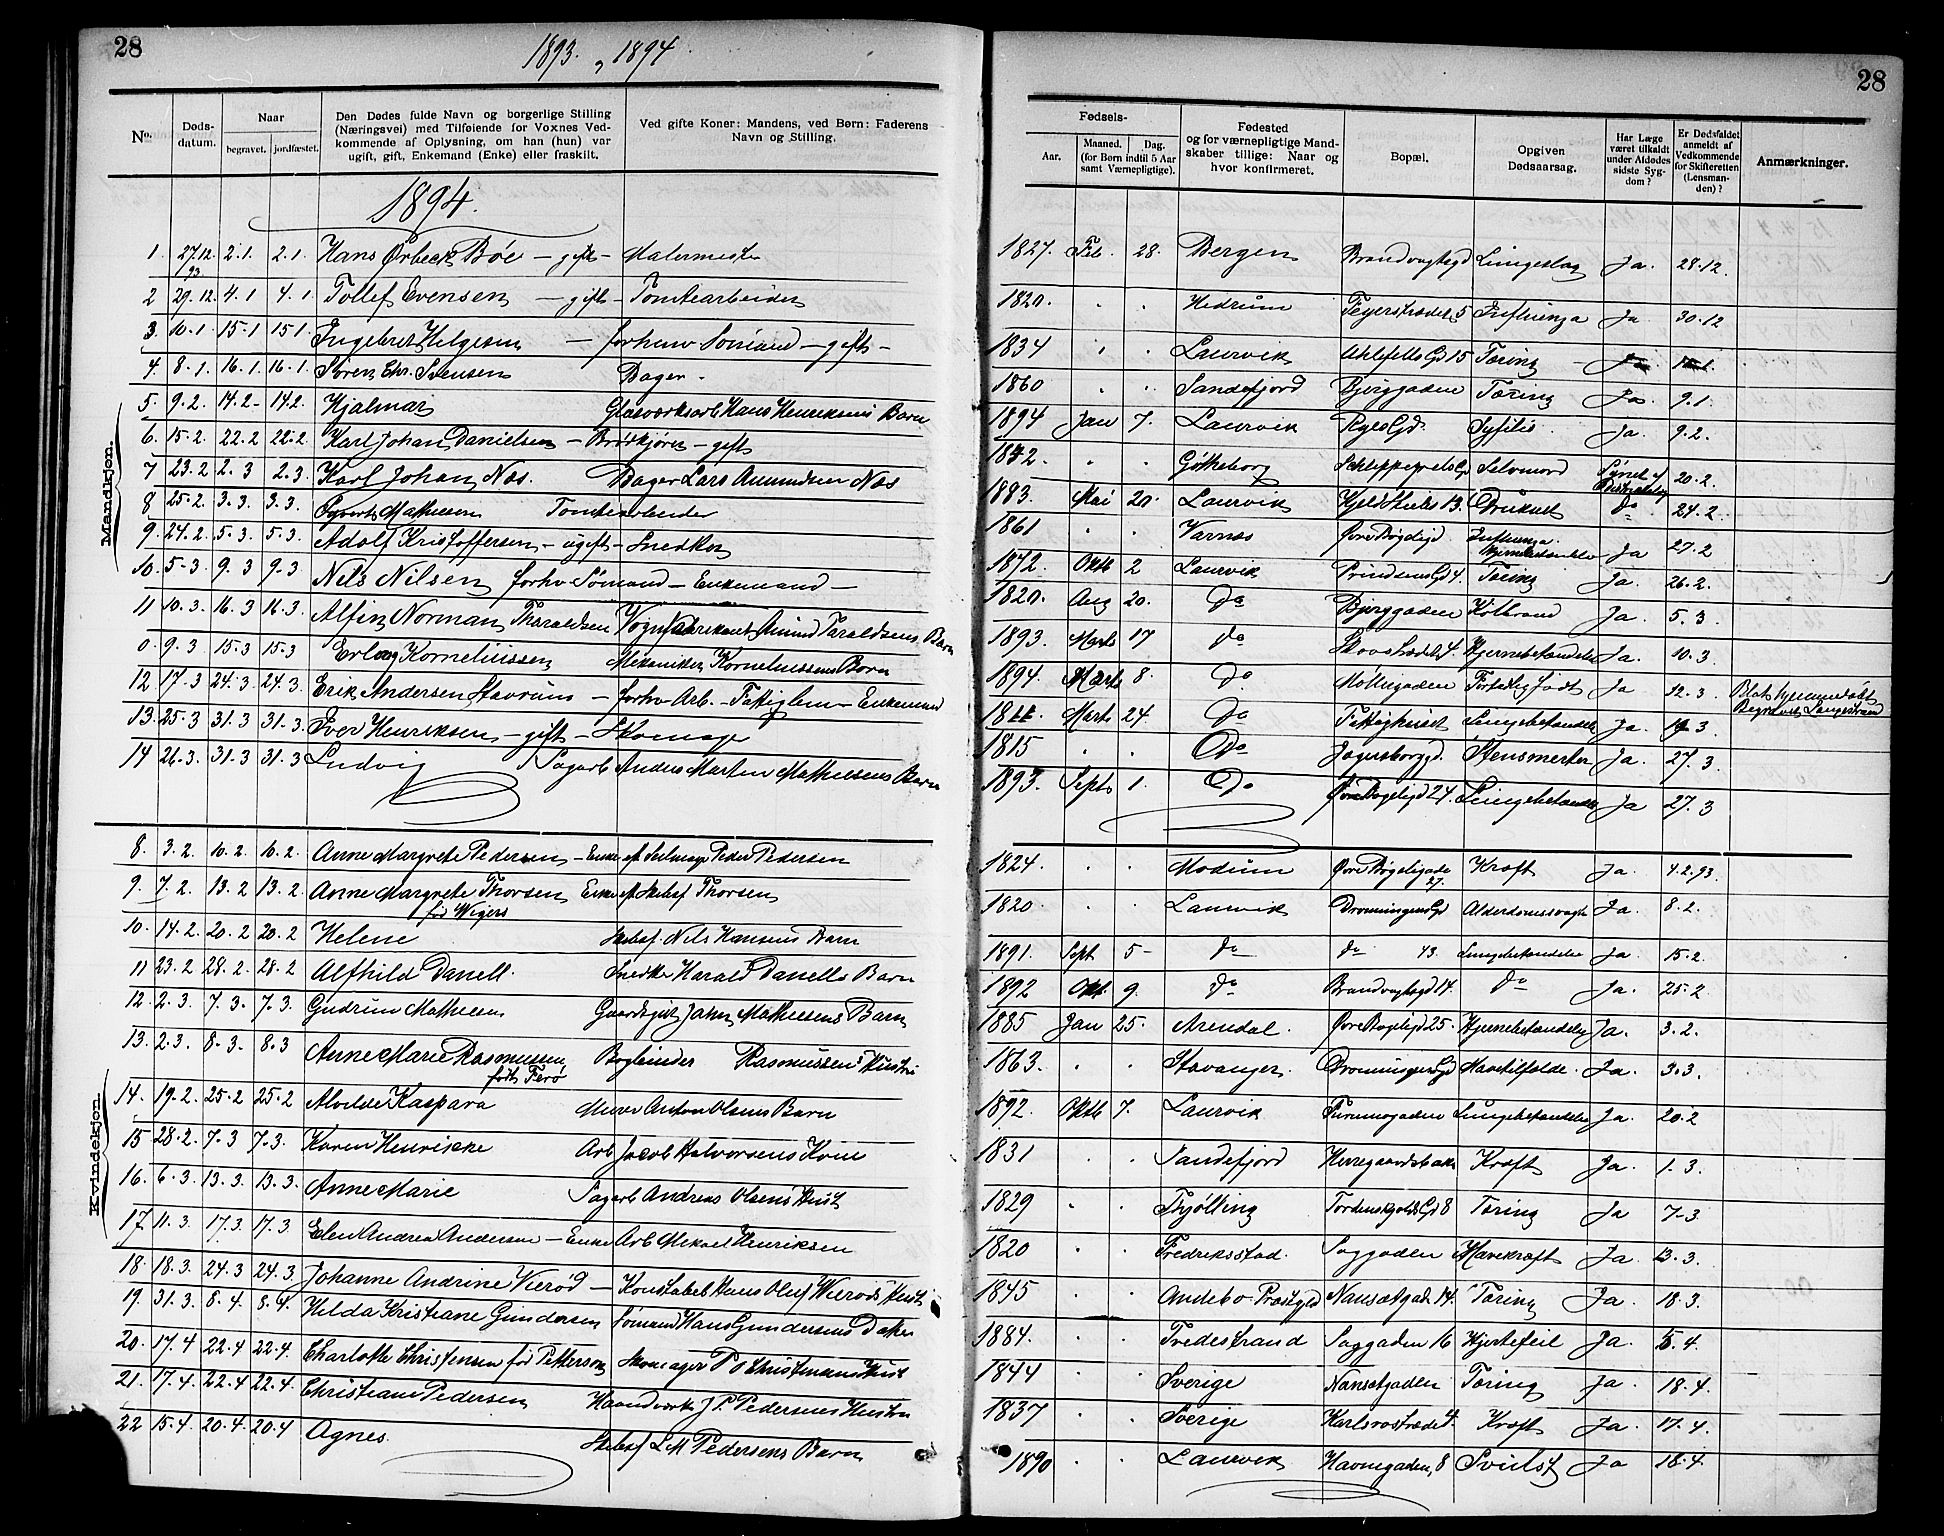 28
1893. „ 1894
28
No.
Døds-datum.
Naar
begravet. jordfæstet.
Den Dødes fulde Navn og borgerlige Stilling (Næringsvei) med Tilføiende for Voxnes Vedkommende af Oplysning, om han (hun) var ugift, gift, Enkemand (Enke) eller fraskilt.
Ved gifte Koner: Mandens, ved Børn: Faderens Navn og Stilling.
Fødsels-
Aar.
Maaned. Dag.
(for Børn indtil 5 Aar samt Værnepligtige).
Fødested og for værnepligtige Mandskaber tillige: Naar og hvor konfirmeret.
Bopæl.
Opgiven Dødsaarsag.
Har Læge været tilkaldt under Afdødes sidste Sygdom?
Er Dødsfaldet anmeldt af Vedkommende for Skifteretten (Lensmanden)?
Anmærkninger.
1894.
Mandkjøn.
1. 27.12.93 2.1. 2.1. Hans Ørbeck Bøe – gift – Malermester 1827. Feb. 28. Bergen Brandvagtsgd Lungeslag Ja. 28.12.
2 29.12. 4.1 4.1. Tollef Evensen – gift – Tomtearbeider 1820. Hedrum Feyerstrædet 5 Influenza Ja 30.12
3. 10.1. 15.1 15.1. Ingebret Helgesen – forhenv Sømand – gift – 1834 Laurvik Ahlefelts Gd 15 Tæring Ja
4. 8.1. 16.1. 16.1. Søren Chr. Svensen Bager. 1860 Sandefjord Bjerggaden Tæring Ja. 9.1.
5. 9.2. 14.2. 14.2. Hjalmar Glasværksarb Hans Henriksens Barn 1894 Jan 7. Laurvik Syfilis Ja. 9.2.
6. 15.2. 22.2 22.2. Karl Johan Danielsen – Brødkjører – gift Gøtheborg Schleppegrels Gd Selvmord 20.2.
7 23.2 2.3 2.3. Karl Johan Næs. Bager Lars Amundsen Næs 1883. Mai 20. Laurvik 13. Druknet Do 24.2.
8 25.2. 3.3. 3.3. Mathisen Tomtearbeider 1861 Varnæs Øvre Bøgeligd Influenza. Ja 27.2
9. 24.2. 5.3. 5.3. Adolf Kristoffersen – ugift – Snedker 1872. Oktb 2 Laurvik Prindsens Gd 4. Tæring Ja. 26.2.
10. 5.3. 9.3 9.3 Nils Nilsen forhv Sømand – Enkemand – 1820. Aug 20. Do Bjerggaden Koldbrand Ja. 5.3.
11 10.3. 16.3 16.3. Alfin Norman Tharaldsen Vognfabrikant Amund Taraldsens Barn 1893. Marts 17 do 4. Hjernebetændelse Ja. 10.3.
0. 9.3 15.3 15.3 Erling Korneliussen Mekaniker Korneliussens Barn 1894. Marts 8. Do Møllegaden For tidlig født Ja 12.3
12 17.3 24.3. 24.3. Erik Andersen Stavrum – forhv. Arb. – Fattiglem – Enkemand Marts 24. Do Fattighuset Lungebetændelse Ja. 19.3
13. 25.3 31.3 31.3. Iver Henriksen – gift – Skomager 1815 Do Jegersborggd. Stensmerter Ja. 27.3.
14 26.3. 31.3 31.3 Ludvig Sagarb Anders Martin Mathiesens Barn 1893. Septb 1. Do Øvre Bøgeligd 24. Lungebetændelse Ja 27.3
Kvindekjøn.
8. 3.2. 10.2. 10.2. Anne Margrete Pedersen – Enke eft Seilmager Peder Pedersen 1824. Modum Øvre Bøgeligade 27. Kræft Ja. 4.2.93.
9. 7.2. 13.2 13.2. Anne Margrete Thorsen født Wigers Enke ef Skibsf Thorsen 1820 Laurvik Dronningens Gd Alderdomssvaghed Ja. 8.2.
10. 14.2. 20.2 20.2 Helene Skibsf. Nils Hansens Barn 1891. Sept 5– do do 43. Lungebetændelse Ja. 15.2.
11 23.2 28.2. 28.2 Alfhild Danell. Snedker Harald Danells Barn 1892 Okt. 9. do Brandvagtsgd 14. do Ja. 25.2
12. 2.3. 7.3. 7.3. Gudrun Mathiesen Gaardsgut Jahn Mathiesens Barn 1885 Jan 25. Arendal. Øvre Bøgeligd 25. Hjernebetændelse Ja. 3.2.
13. 2.3. 8.3. 8.3 Anne Marie Rasmussen født Ferø Bogbinder Rasmussens Hustru 1863. Stavanger. Dronningens Gd Mavetilfælde. Ja. 3.3.
14. 19.2. 25.2 25.2 Alvilde Kaspara Murer Anton Olsens Barn 1892. Oktb 7. Laurvik Lungebetændelse Ja. 20.2
15 28.2. 7.3 7.3. Karen Henrikke Arb Jacob Halvorsens Kone 1831 Sandefjord Herregaardsbakken Kræft Ja. 1.3.
16. 6.3. 13.3. 13.3. Anne Marie Sagarb Andreas Olsens Hust 1829 Thjølling Tordenskjolds Gd 8 Tæring Ja 7.3
17 11.3. 17.3. 17.3. Elen Andrea Andersen – Enke Arb Mikael Henriksen 1820 Fredriksstad. Saggaden Mavekræft Ja 13.3.
18. 18.3. 24.3 24.3. Johanne Andrine Vierød – Konstabel Hans Oluf Vierøds Hust 1845 Andebo Præstgjeld Nansetgad 14. Tæring Ja. 18.3.
19. 31.3. 8.4. 8.4. Hilda Kristiane Gundersen Sømand Hans Gundersens Datter 1884. Tvedestrand Saggaden 16 Hjertefeil Ja. 5.4.
20. 17.4 22.4 22.4. Charlotte Christensen fød Petterson Skomager P Christensens Hust 1844 Sverige Nansetgaden Tæring Ja. 18.4.
21. 17.4. 22.4 22.4. Christiane Pedersen Haandværker J P Pedersens Hustru 1837 Sverige Karlsrostræde 4. Kræft Ja. 17.4.
22 15.4. 20.4. 20.4 Agnes. Skibsf L M Pedersens Barn 1890 Laurvik Havnegaden 8 Ja 18.4.